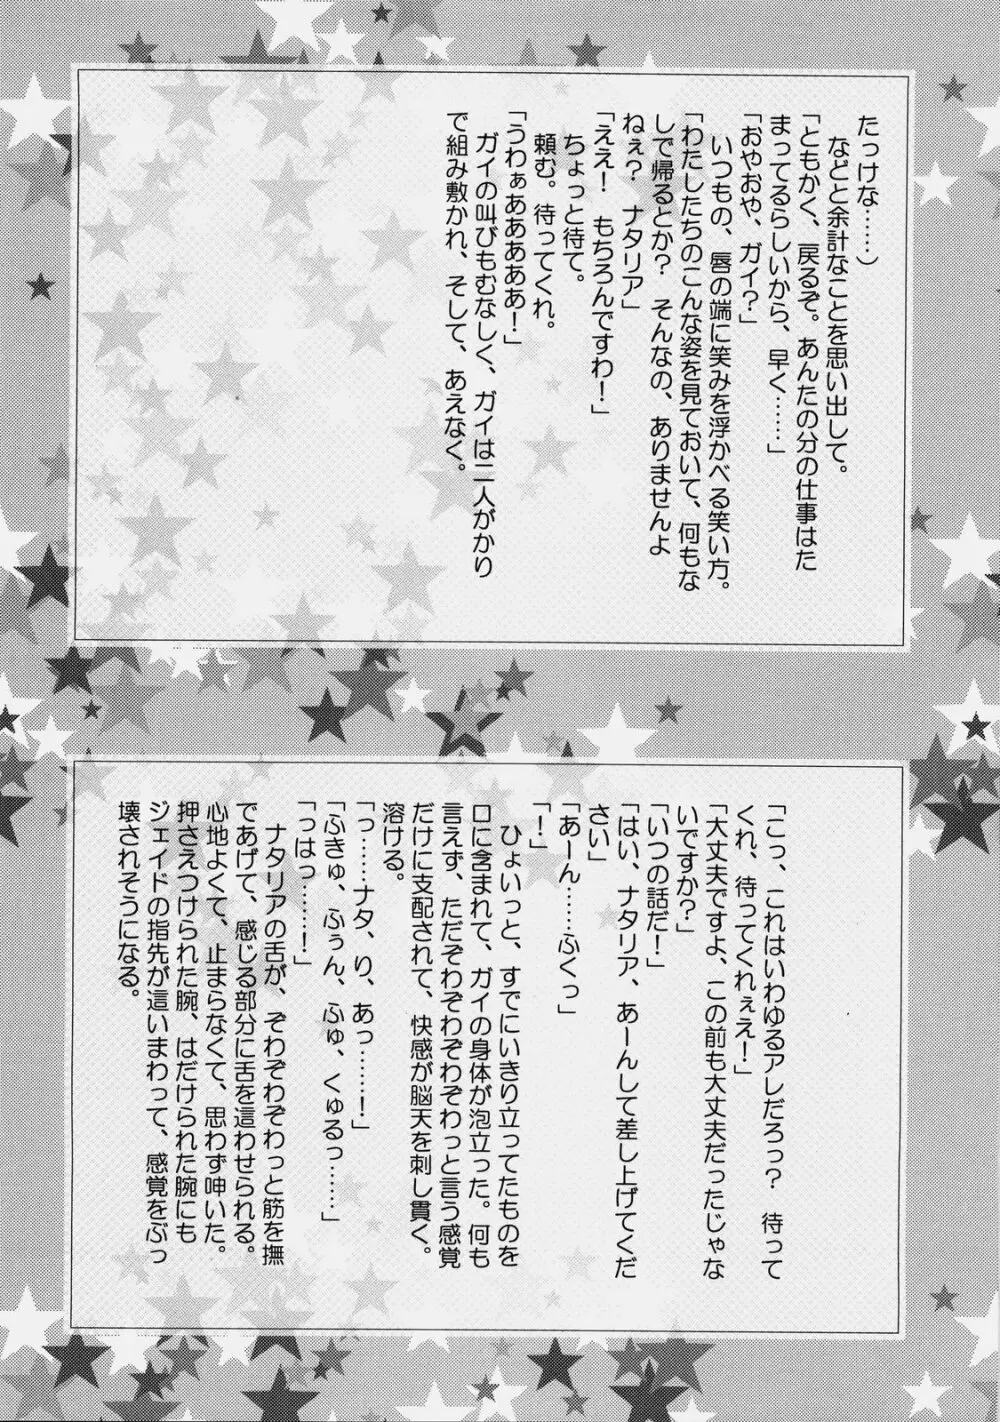 たっけな……）
　などと余計なことを思い出して。
「ともかく、戻るぞ。あんたの分の仕事はた
まってるらしいから、早く……」
「おやおや、ガイ？」
　いつもの、唇の端に笑みを浮かべる笑い方。
「わたしたちのこんな姿を見ておいて、何もな
しで帰るとか？　そんなの、ありませんよ
ねぇ？　ナタリア」
「ええ！　もちろんですわ！」
　ちょっと待て。
　頼む。待ってくれ。
「うわぁああああ！」
　ガイの叫びもむなしく、ガイは二人がかり
で組み敷かれ、そして、あえなく。
「こっ、これはいわゆるアレだろっ？　待って
くれ、待ってくれぇえ！」
「大丈夫ですよ、この前も大丈夫だったじゃな
いですか？」
「いつの話だ！」
「はい、ナタリア、あーんして差し上げてくだ
さい」
「あーん……ふくっ」
「！」
　ひょいっと、すでにいきり立ってたものを
口に含まれて、ガイの身体が泡立った。何も
言えず、ただぞわぞわぞわぞわっと言う感覚
だけに支配されて、快感が脳天を刺し貫く。
溶ける。
「っ……ナタ、り、あっ……！」
「ふきゅ、ふぅん、ふゅ、くゅるっ……」
「っはっ……！」
　ナタリアの舌が、ぞわぞわぞわっと筋を撫
であげて、感じる部分に舌を這わせられる。
心地よくて、止まらなくて、思わず呻いた。
押さえつけられた腕、はだけられた腕にも
ジェイドの指先が這いまわって、感覚をぶっ
壊されそうになる。